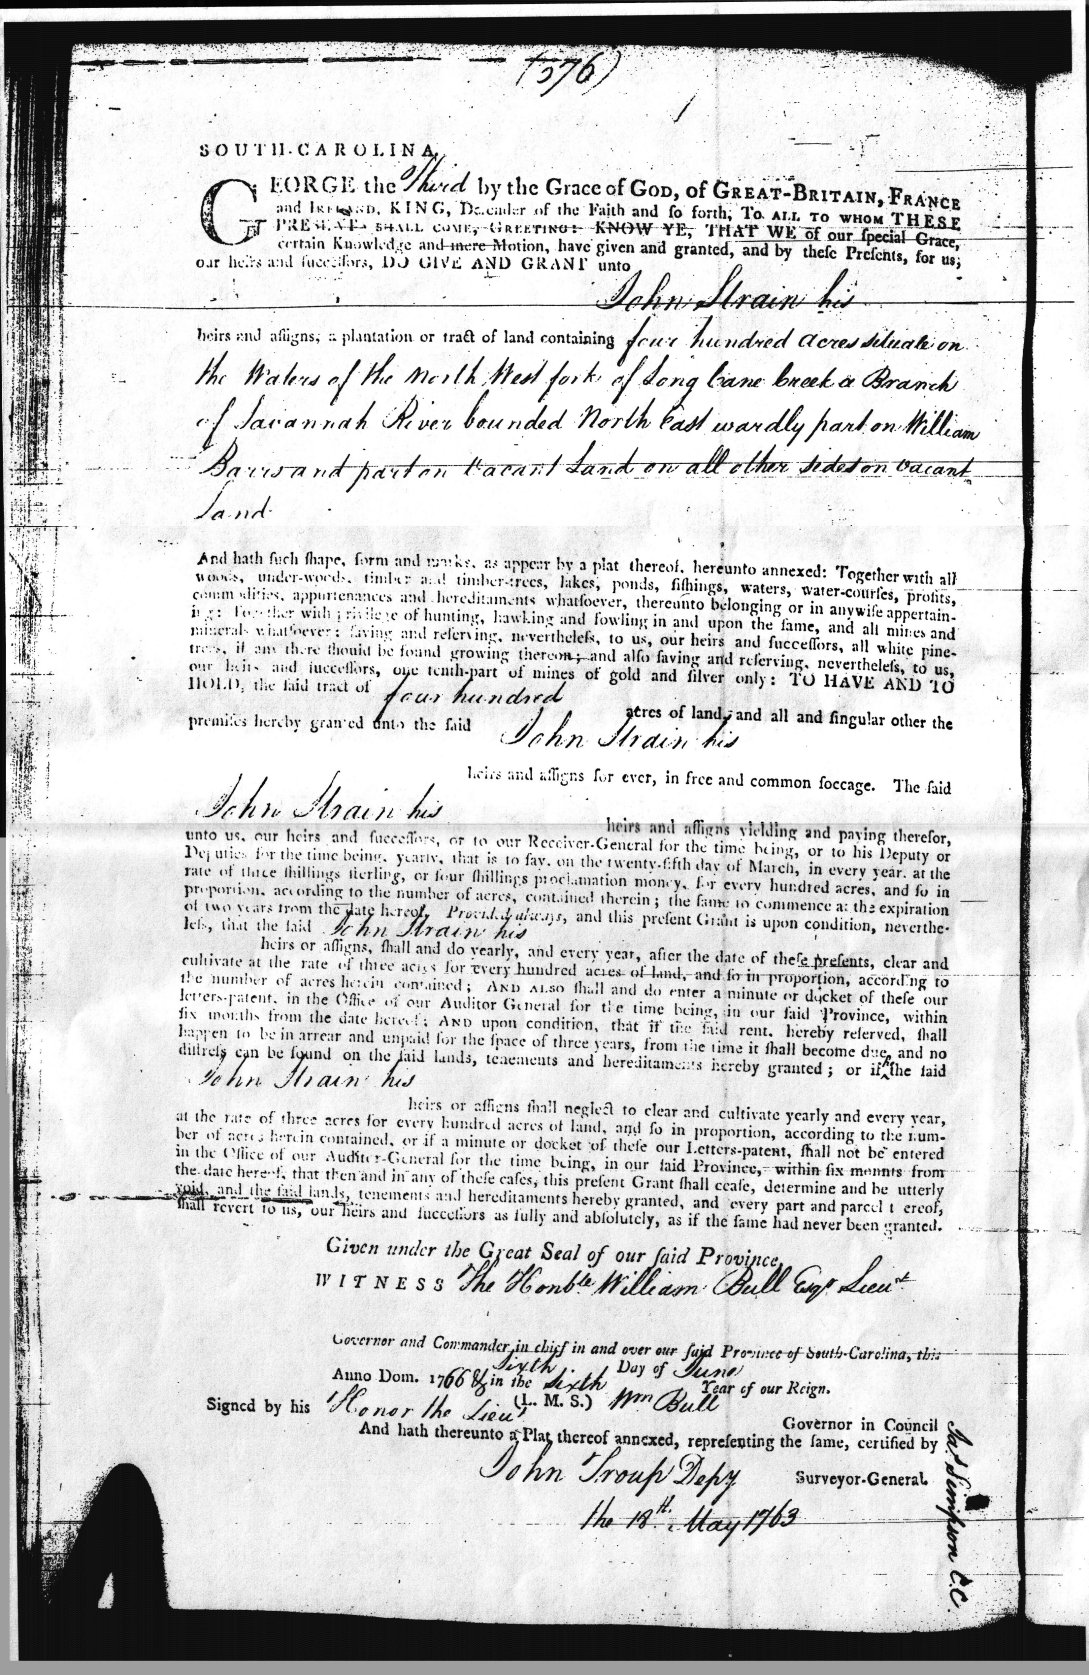 (376)
SOUTH-CAROLINA,
GEORGE the Third by the Grace of GOD, of GREAT-BRITAIN, FRANCE
and IRELAND, KING, Defender of the Faith and ſo forth, TO ALL TO WHOM THESE
PRESENTS SHALL COME, GREETING: KNOW YE, THAT WE of our ſpecial Grace,
certain Knowledge and mere Motion, have given and granted, and by theſe Preſents, for us,
our heirs and ſucceſſors, DO GIVE AND GRANT unto
John Strain his
heirs and aſſigns, a plantation or tract of land containing four hundred acres situate on
the Waters of the North West fork of Long Cane Creek a Branch
of Savannah River bounded North East wardly part on William
Barrs and part on Vacant Land on all other sides on vacant
Land
And hath ſuch ſhape, form and marks, as appear by a plat thereof, hereunto annexed: Together with all
woods, under-woods, timber and timber-trees, lakes, ponds, fiſhings, waters, water-courſes, profits,
commodities, appurtenances and hereditaments whatſoever, thereunto belonging or in anywiſe appertain-
ing: Together with privilege of hunting, hawking and fowling in and upon the ſame, and all mines and
minerals whatſoever; ſaving and reſerving, nevertheleſs, to us, our heirs and ſucceſſors, all white pine-
trees, if any there ſhould be found growing thereon; and alſo ſaving and reſerving, nevertheleſs, to us,
our heirs and ſucceſſors, one tenth-part of mines of gold and ſilver only: TO HAVE AND TO
HOLD, the ſaid tract of four hundred
acres of land, and all and ſingular other the
premiſes hereby granted unto the ſaid John Strain his
heirs and aſſigns for ever, in free and common ſoccage. The ſaid
John Strain his
heirs and aſſigns yielding and paying therefor,
unto us, our heirs and ſucceſſors, or to our Receiver-General for the time being, or to his Deputy or
Deputies for the time being, yearly, that is to ſay, on the twenty-fifth day of March, in every year, at the
rate of three ſhillings ſterling, or four ſhillings proclamation money, for every hundred acres, and ſo in
proportion, according to the number of acres, contained therein; the ſame to commence at the expiration
of two years from the date hereof. Provided always, and this preſent Grant is upon condition, neverthe-
leſs, that the ſaid John Strain his
heirs or aſſigns, ſhall and do yearly, and every year, after the date of theſe preſents, clear and
cultivate at the rate of three acres for every hundred acres of land, and ſo in proportion, according to
the number of acres herein contained; AND ALSO ſhall and do enter a minute or docket of theſe our
letters-patent, in the Office of our Auditor General for the time being, in our ſaid Province, within
ſix months from the date hereof; AND upon condition, that if the ſaid rent, hereby reſerved, ſhall
happen to be in arrear and unpaid for the ſpace of three years, from the time it ſhall become due, and no
diſtreſs can be found on the ſaid lands, tenements and hereditaments hereby granted; or if the ſaid
John Strain his
heirs or aſſigns ſhall neglect to clear and cultivate yearly and every year,
at the rate of three acres for every hundred acres of land, and ſo in proportion, according to the num-
ber of acres herein contained, or if a minute or docket of theſe our Letters-patent, ſhall not be entered
in the Office of our Auditor-General for the time being, in our ſaid Province, within ſix months from
the date hereof, that then and in any of theſe caſes, this preſent Grant ſhall ceaſe, determine and be utterly
void, and the ſaid lands, tenements and hereditaments hereby granted, and every part and parcel thereof,
ſhall revert to us, our heirs and ſucceſſors as fully and abſolutely, as if the ſame had never been granted.
Given under the Great Seal of our ſaid Province,
WITNESS The Honble William Bull Esqr Lieut
Governor and Commander in chief in and over our ſaid Province of South-Carolina, this
Sixth Day of June
Anno Dom. 1766 & in the Sixth Year of our Reign.
Signed by his Honor the Lieut (L. M. S.) Wm Bull
Governor in Council
And hath thereunto a Plat thereof annexed, repreſenting the ſame, certified by
John Troup Depy Surveyor-General.
the 18th. May 1763
Jas Simpson C.C.